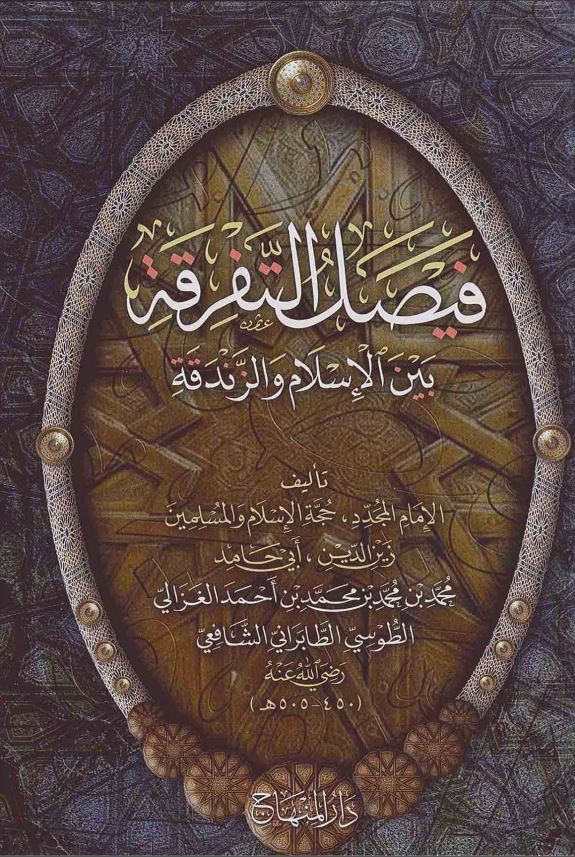 فَيْصَلُ التَّفْرِقَةِ
بَيْنَ الْإِسْلَامِ وَالزَّنْدَقَةِ
تَأليف
الإِمَامِ المُجَدِّدِ، حُجَّةِ الإِسْلَامِ وَالمُسْلِمِينَ
زَيْنِ الدِّينِ، أَبِي حَامِدٍ
مُحَمَّدِ بْنِ مُحَمَّدِ بْنِ مُحَمَّدِ بْنِ أَحْمَدَ الغَزَالِيِّ
الطُّوسِيِّ الطَّابَرَانِيِّ الشَّافِعِيِّ
رَضِيَ اللهُ عَنْهُ
(٤٥٠-٥٠٥هـ)
دَارُ المِنْهَاجِ